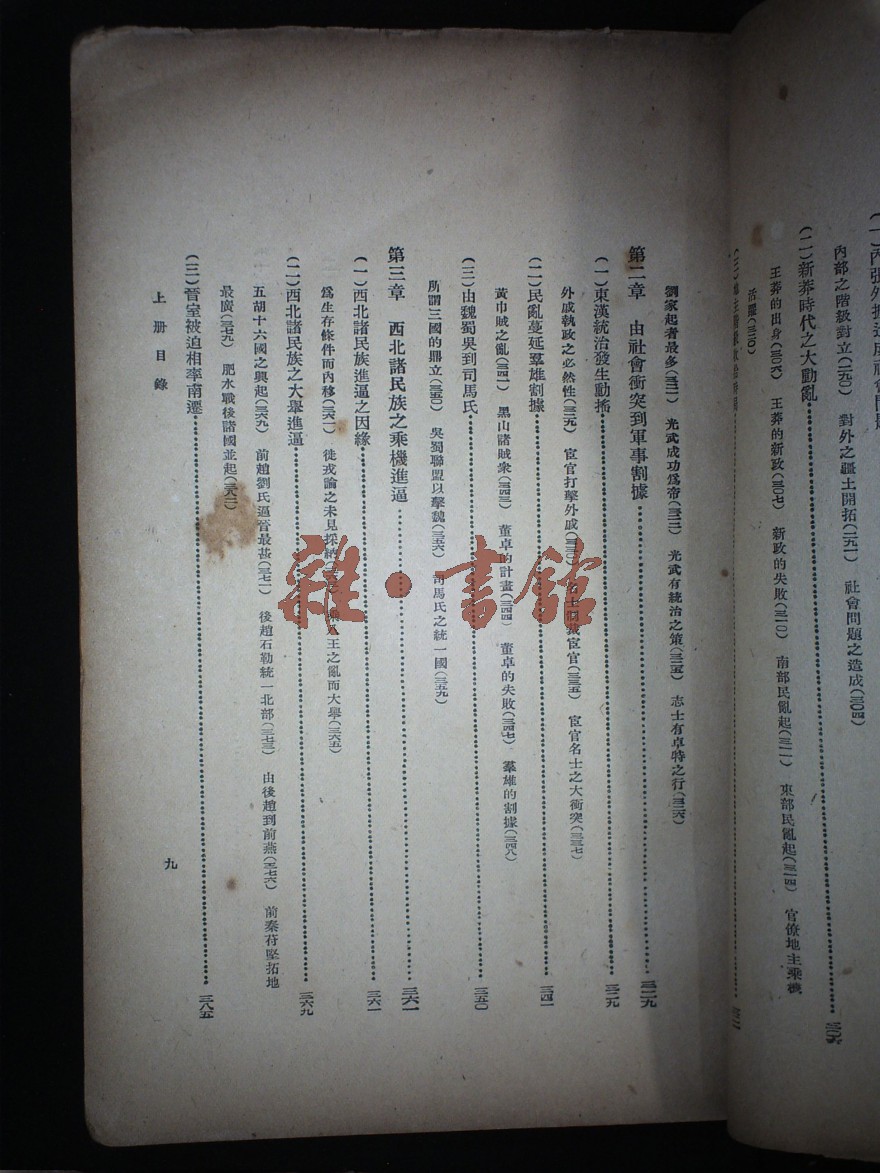 內部之階級對立(二九〇) 對外之疆土開拓(二九一) 社會問題之造成(三〇四)
(二)新莽時代之大動亂 三〇六
王莽的出身(三〇六) 王莽的新政(三〇七) 新政的失敗(三一〇) 南部民亂起(三一一) 東部民亂起(三一四) 官僚地主乘機
活躍(三二〇)
劉家起者最多(三二一) 光武成功爲帝(三二二) 光武有統治之策(三二五) 志士有卓特之行(三二六)
第二章 由社會衝突到軍事割據 三二九
(一)東漢統治發生動搖 三二九
外戚執政之必然性(三二九) 宦官打擊外戚(三三〇) 名士制裁宦官(三三五) 宦官名士之大衝突(三三七)
(二)民亂蔓延羣雄割據 三四一
黃巾賊之亂(三四一) 黑山諸賊衆(三四三) 董卓的計畫(三四四) 董卓的失敗(三四七) 羣雄的割據(三四八)
(三)由魏蜀吳到司馬氏 三五〇
所謂三國的鼎立(三五〇) 吳蜀聯盟以擊魏(三五六) 司馬氏之統一國(三五九)
第三章 西北諸民族之乘機進逼 三六一
(一)西北諸民族進逼之因緣 三六一
爲生存條件而內移(三六一) 徙戎論之未見採納 八王之亂而大舉(三六五)
(二)西北諸民族之大舉進逼 三六九
五胡十六國之興起(三六九) 前趙劉氏逼晉最甚(三七一) 後趙石勒統一北部(三七三) 由後趙到前燕(三七六) 前秦苻堅拓地
最廣(三七九) 肥水戰後諸國並起(三八二)
(三)晉室被迫相率南遷 三八五
上册目錄
九
雜·書館